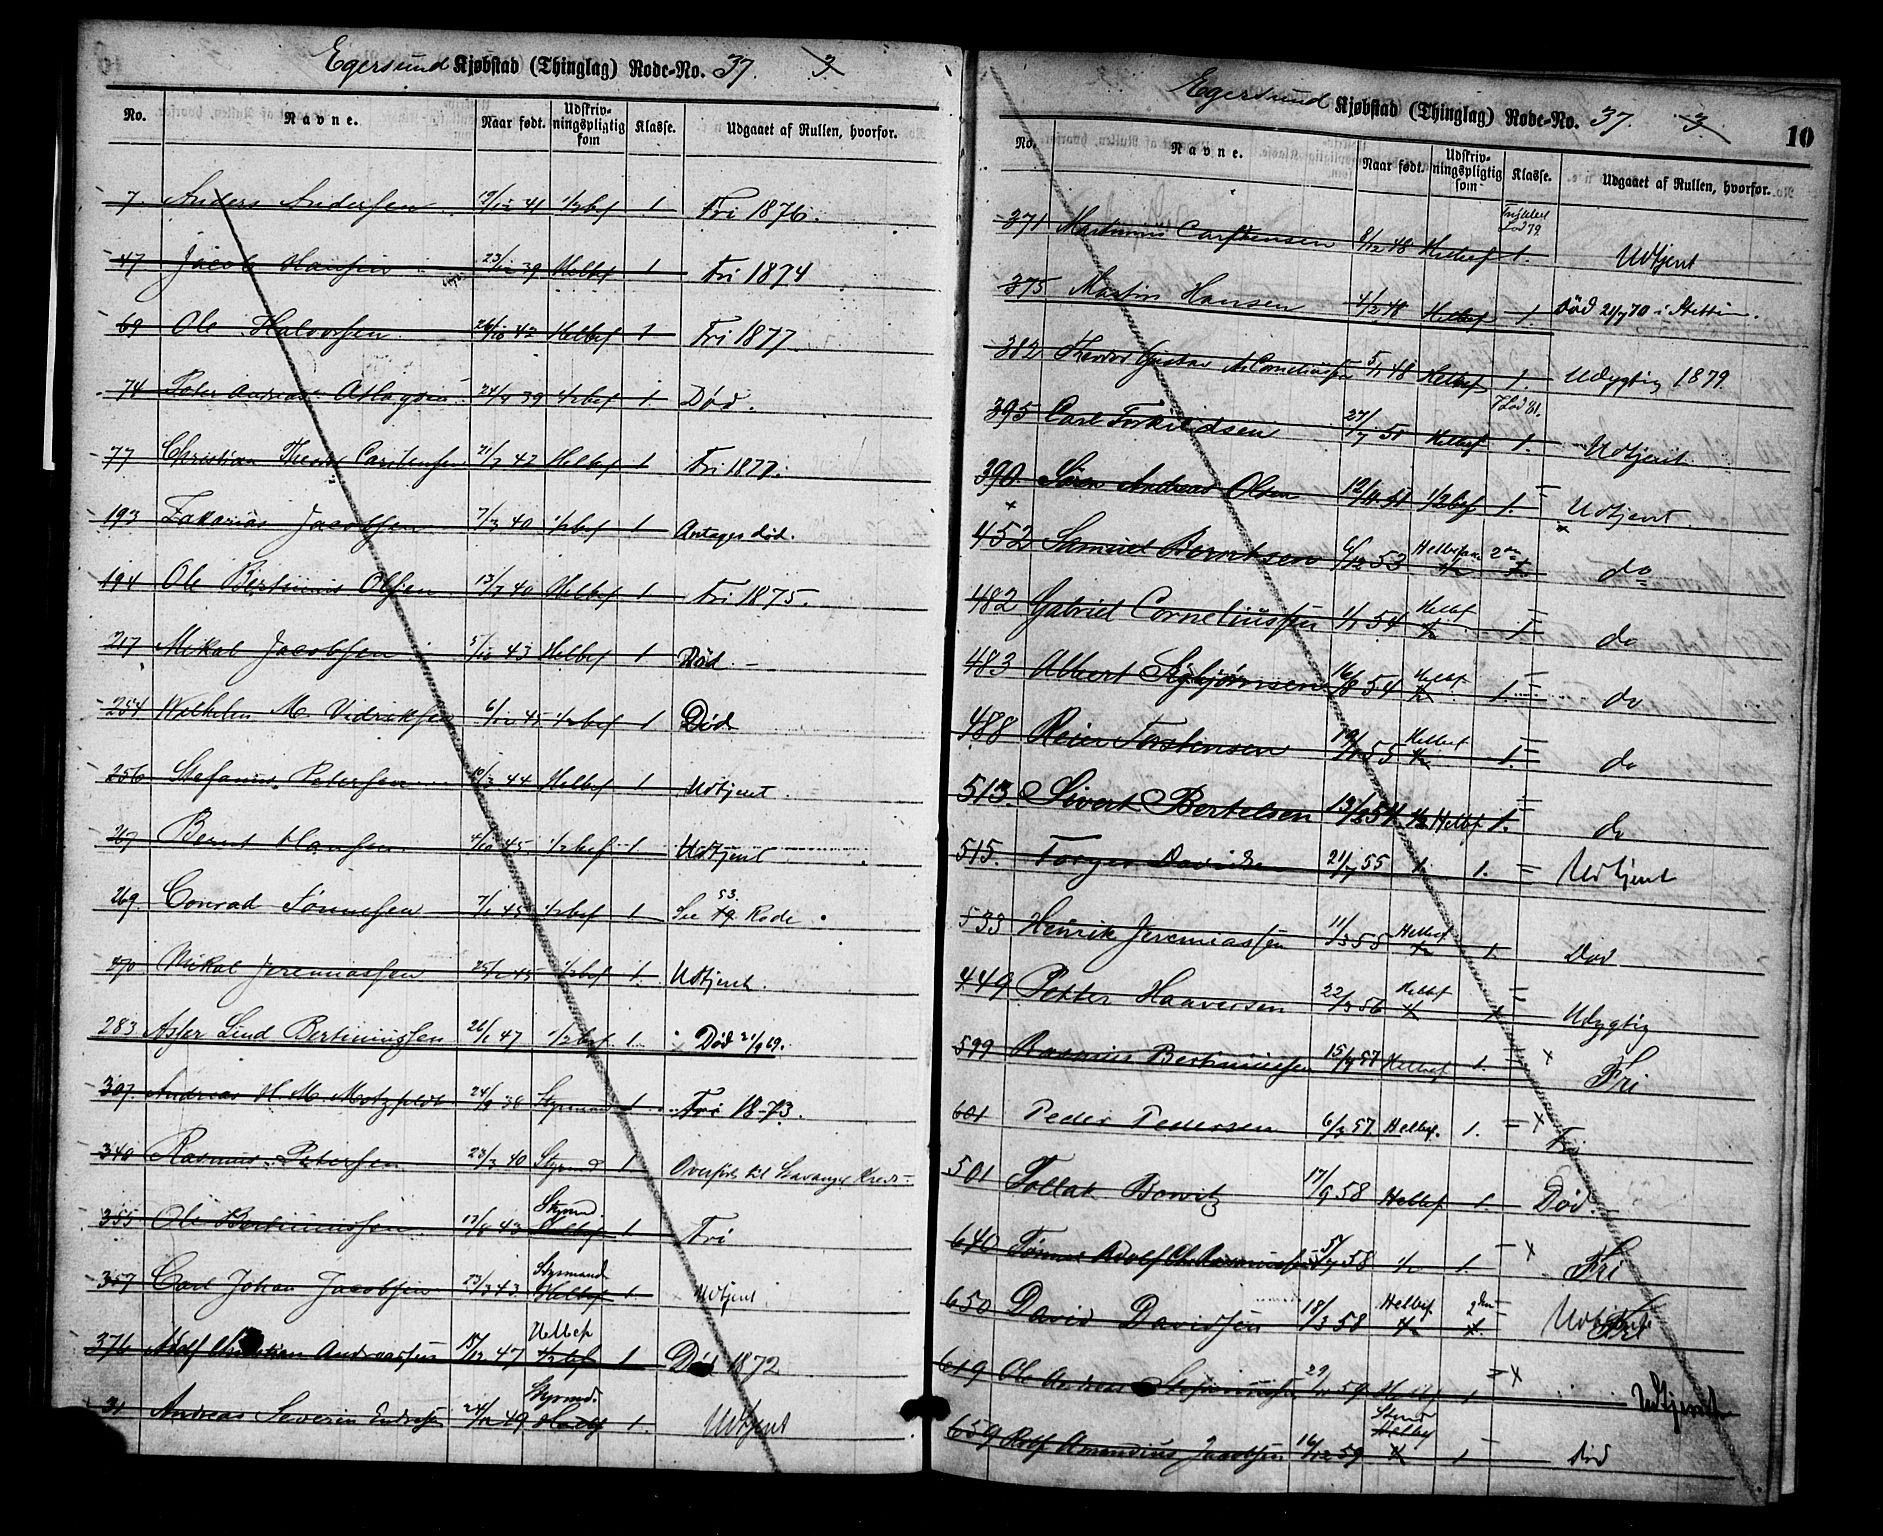 Egersund Kjøbstad (Thinglag) Rode-No. 37. 3.
No. Navne. Naar født. Udskriv-ningspligtig som Klasse. Udgaaet af Rullen, hvorfor.
7. Anders Andersen 19/12 41 1/2bef 1 Fri 1876.
47 Jacob Hansen 23/12 39 Helbef 1 Fri 1874
69 Ole Halvorsen 26/10 42 Helbef 1 Fri 1877
74 Peter Andreas 24/4 39 1/2bef 1. Død.
77 Christian Theodor Carstensen 21/7 42 Helbef 1 Fri 1877.
193 Zakarias Jacobsen 7/3 40 1/2bef 1 Antages død.
194 Ole Bertinius Olsen 13/7 40 Helbef 1 Fri 1875.
217 Mikal Jacobsen 5/10 43 Helbef 1 Død.
254 Wilhelm M. Vedriksen 6/12 45 1/2bef 1 Død
256 Stefanus Petersen 10/3 44 Helbef 1 Udtjent
267 Bernt Hansen 4/10 45 1/2bef 1 Udtjent
269. Conrad Tønnesen 7/1 45 1/2bef 1 See 53. Rode
270 Mikal Jeremiassen 25/1 45 1/2bef 1. Udtjent.
283 Asser Lind Bertiniussen 26/1 47 1/2bef 1. Død 21/9 69.
307. Andreas H. M. Motzfeldt 24/9 38 Styrmand 1 Fri 1873.
340 Rasmus Petersen 23/3 40 Styrmd 1 Overført til Stavanger Kreds
355 Ole Bertiniussen 17/8 43 Styrmd Helbef 1. Fri
357 Carl Johan Jacobsen 23/3 43 Styrmand Helbef 1. Udtjent
376 Adolf Christian Andreassen 18/12 47 Helbef 1/2bef 1 Død 1872
31 Andreas Severin Endresen 24/12 49 Styrmd. Helbf 1. Udtjent
Egersund Kjøbstad (Thinglag) Rode-No. 37. 3. 10
No. Navne. Naar født. Udskriv-ningspligtig som Klasse. Udgaaet af Rullen, hvorfor.
371 Martinius Carstensen 8/12 48 Helbef 1. Udtjent
375 Martin Hansen 4/2 48 Helbef 1. Død 21/7 70 i Stettin.
382 Theodor Gustav M. Corneliussen 5/1 48 Helbef 1. Udygtig 1879.
395 Carl Torkildsen 27/7 51 Helbef 1. Udtjent
390. Søren Andreas Olsen 12/11 51 1/2bef 1. Udtjent.
452 Samuel Berentsen 6/12 53 Helbefaren 1/2 do
482 Gabriel Corneliussen 1/1 54 Helbf 1/2 1 do
483 Albert Asbjørnsen 16/8 54 Helbf 1/2 1. do
488 Reier Torstensen 19/1 55 Helbef 1/2 1. do
513. Sivert Bertelsen 13/2 54 1/2 Helbf 1. do
515. Torger Davidsen 21/7 55 1. Udtjent
533 Henrik Jeremiassen 11/3 55 Helbef 1/2 1. Død
449 Petter Haaversen 22/3 56 Helbef 1/2 1 Udygtig
599 Rasmus Bertiniussen 15/7 57 Helbef 1. Fri
601 Peder Pedersen 6/7 57 Helbef. 1. Fri
501 Tollak Bowitz 17/9 58 Helbef 1. Død.
640 Tønnes Adolf Chr. Rasmussen 5/7 58 1/2 1. Fri
650 David Davidsen 18/3 58 Helbef 1/2 Udtjent Fri
619 Ole Andreas 29/11 59 Helbef 1 Udtjent
659 Rolf Amandius Jacobsen 16/12 59 Stmd Helbef 1/2 1 død